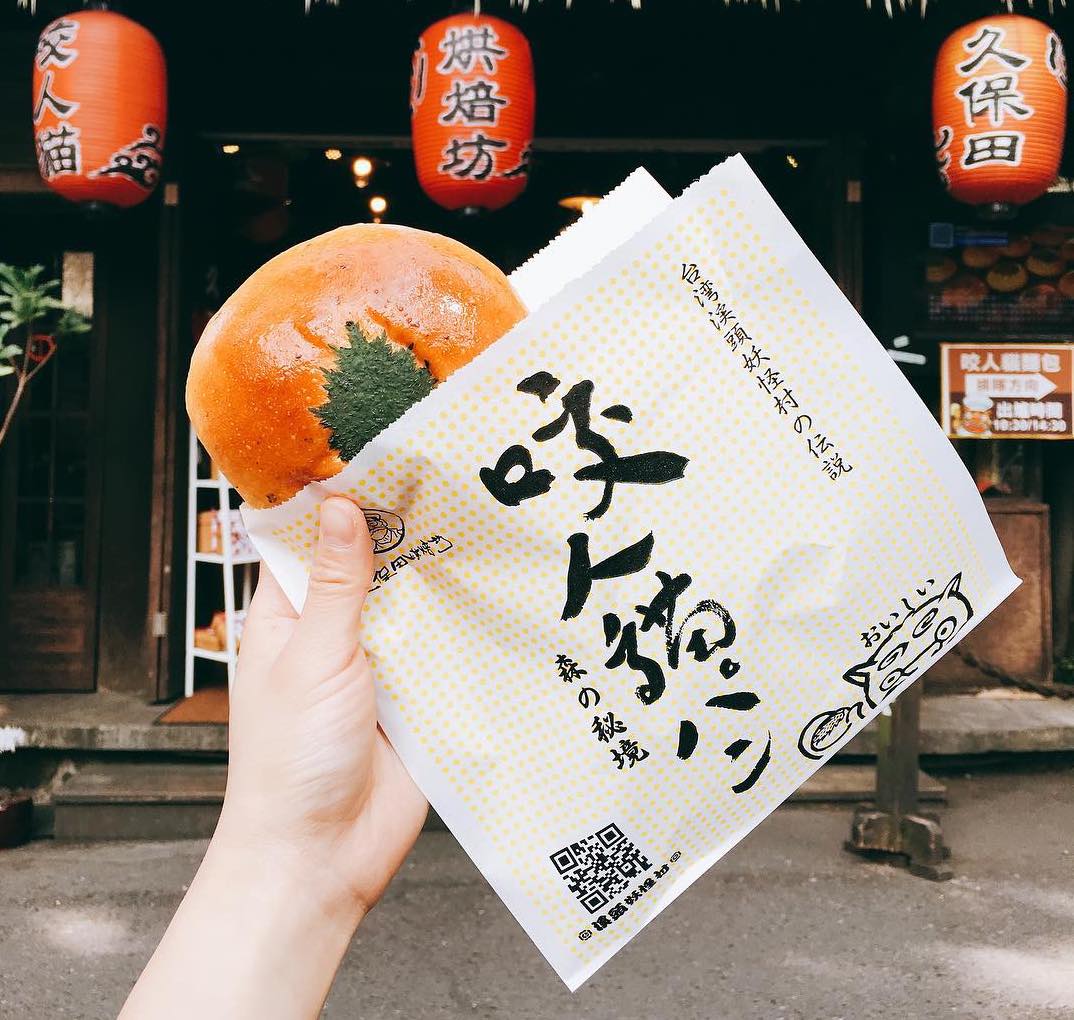 咬人貓
烘焙坊
久保田
台湾溪頭妖怪村の伝説
咬人貓パン
森の秘境
おいしい
咬人貓麵包
排隊方向
出爐時間
10:30/14:30
溪頭妖怪村